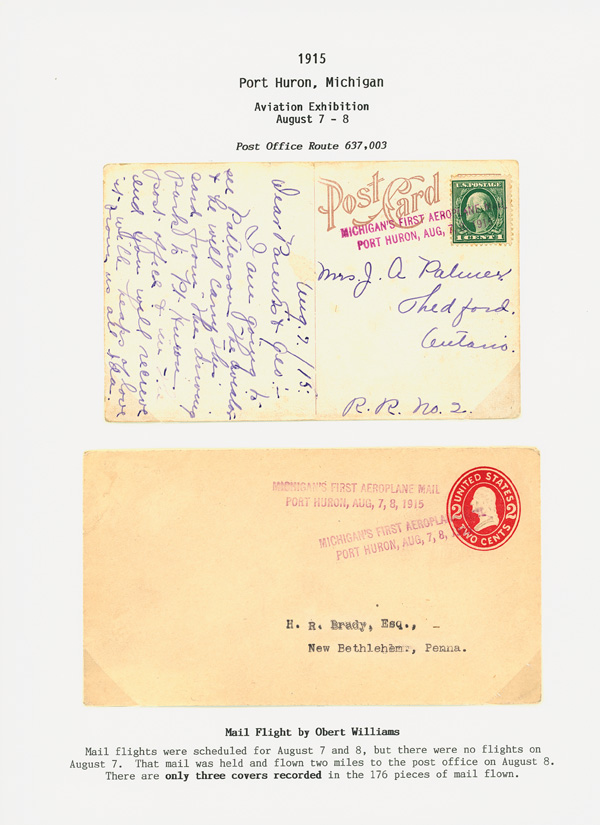 1915
Port Huron, Michigan
Aviation Exhibition
August 7 - 8
Post Office Route 637,003
Aug. 7/15.
Dear Parents & Geo: -
I am going to
see Patterson the aviator
& he will carry this
card from the driving
park to Pt. Huron
post office &
and you will receive
it with heaps of love
from us all
Post Card
U.S. POSTAGE
1 CENT 1
MICHIGAN'S FIRST AEROPLANE
PORT HURON, AUG, 7
Mrs. J. A. Palmer
Thedford.
Ontario.
R. R. No. 2.
MICHIGAN'S FIRST AEROPLANE MAIL
PORT HURON, AUG, 7, 8, 1915
MICHIGAN'S FIRST AEROPLA
PORT HURON, AUG, 7, 8,
UNITED STATES
2 2
TWO CENTS
H. R. Brady, Esq.,
New Bethlehem, Penna.
Mail Flight by Obert Williams
Mail flights were scheduled for August 7 and 8, but there were no flights on
August 7. That mail was held and flown two miles to the post office on August 8.
There are only three covers recorded in the 176 pieces of mail flown.